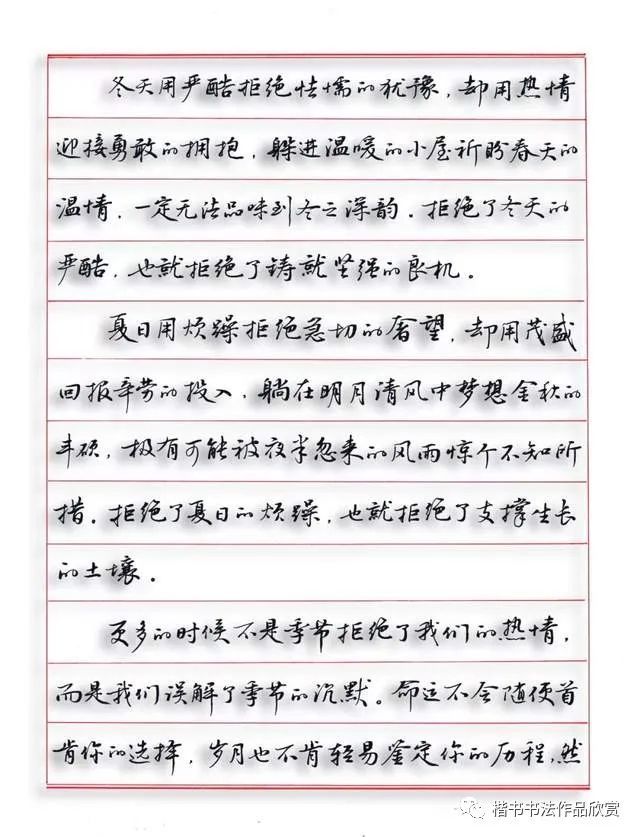 冬天用严酷拒绝怯懦的犹豫，却用热情
迎接勇敢的拥抱，躲进温暖的小屋祈盼春天的
温情，一定无法品味到冬之深韵。拒绝了冬天的
严酷，也就拒绝了铸就坚强的良机。
夏日用烦躁拒绝急切的奢望，却用茂盛
回报辛劳的投入，躺在明月清风中梦想金秋的
丰硕，极有可能被夜半忽来的风雨惊个不知所
措。拒绝了夏日的烦躁，也就拒绝了支撑生长
的土壤。
更多的时候不是季节拒绝了我们的热情，
而是我们误解了季节的沉默。命运不会随便首
肯你的选择，岁月也不肯轻易鉴定你的历程，然
楷书书法作品欣赏